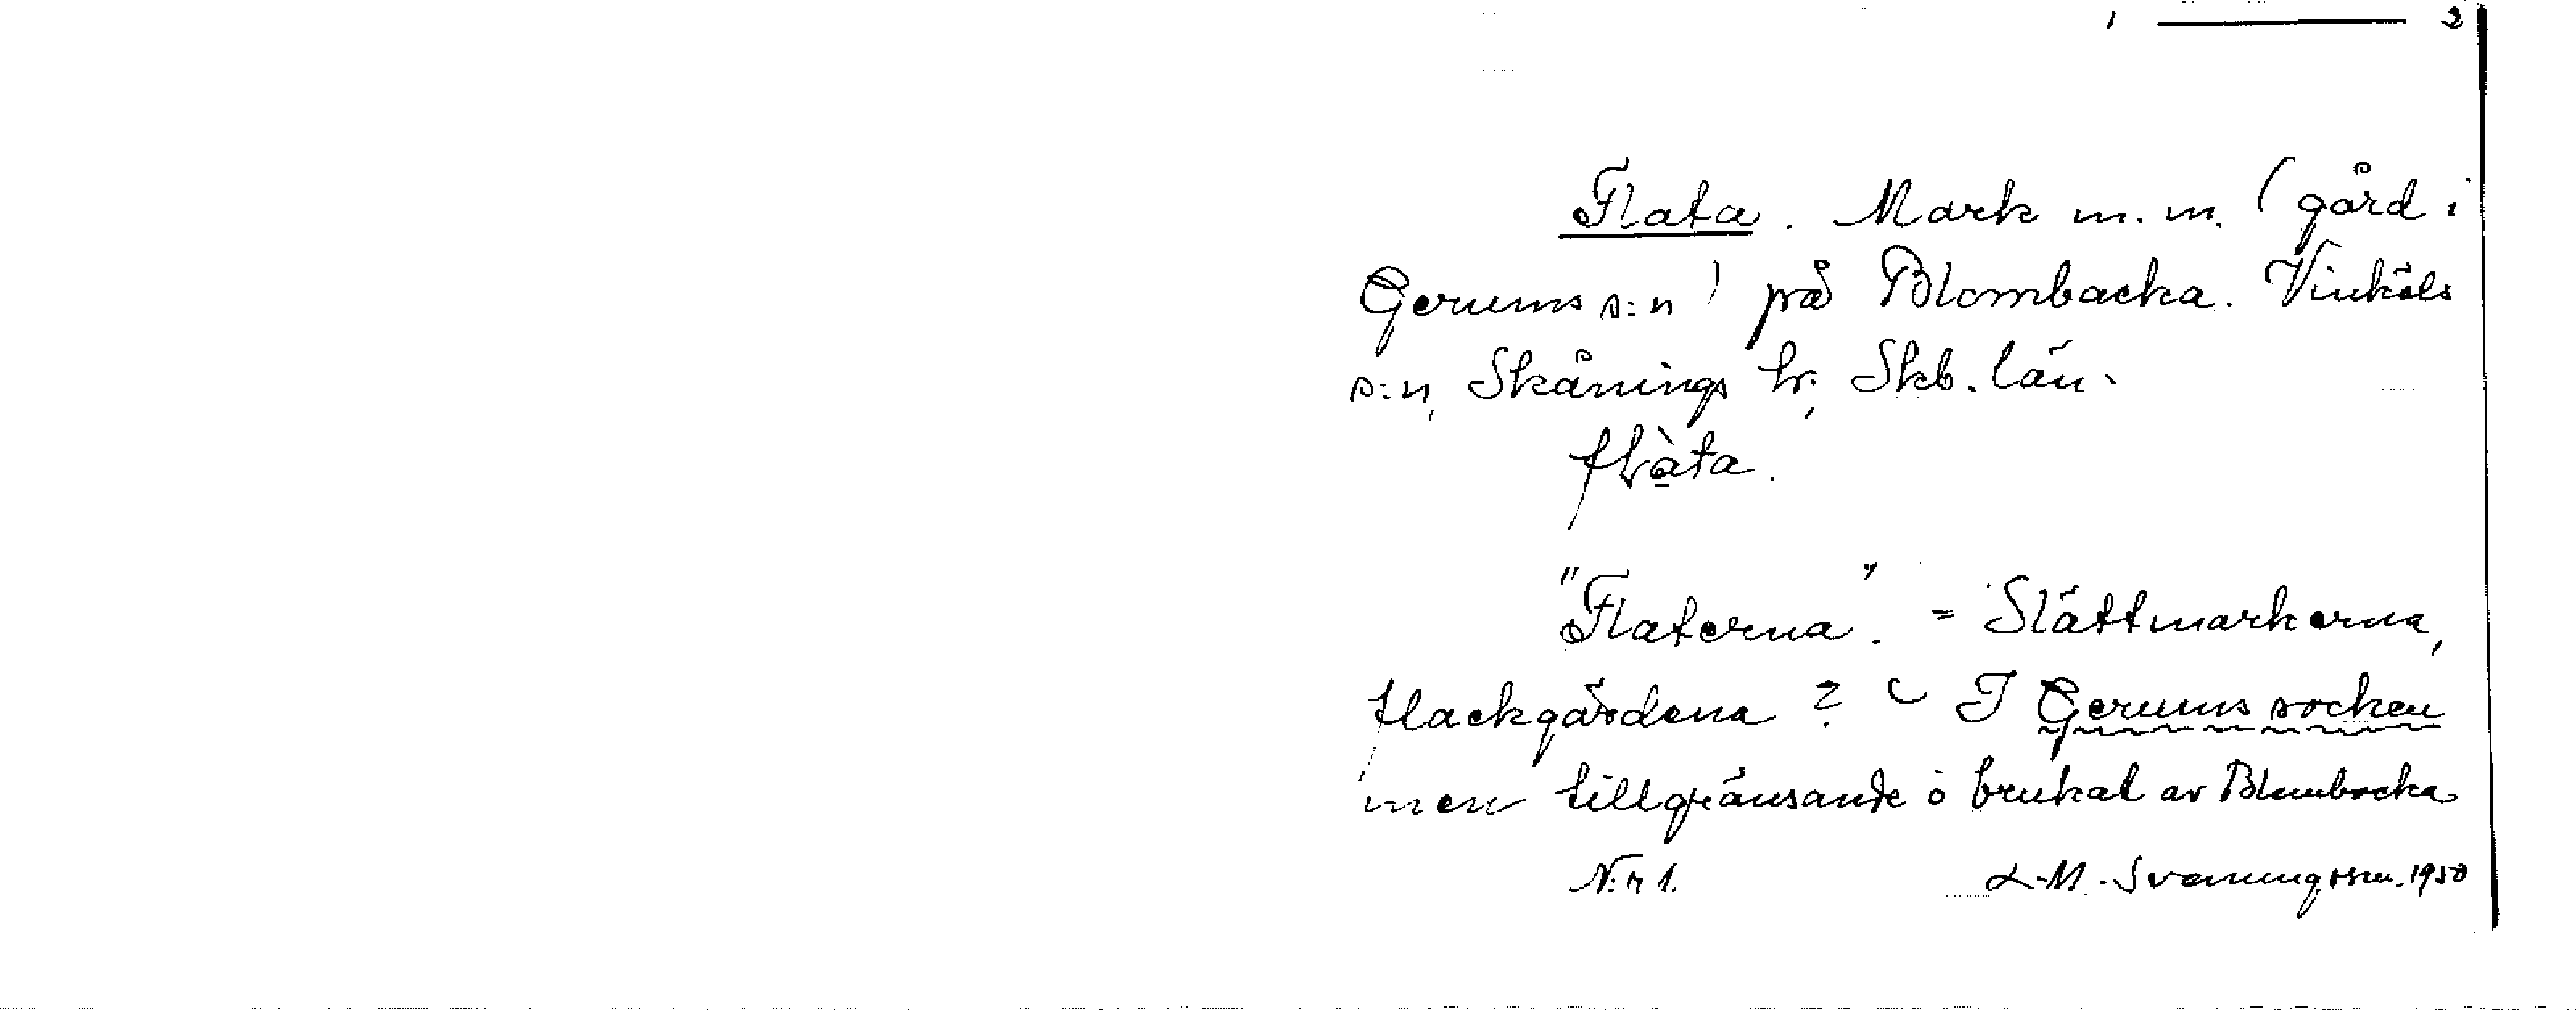 1 ——— 2
Flata. Mark m.m. (gård i
Gerums s:n) på Blombacka. Vinköls
s:n, Skånings hr, Skb. län.
flàta.
"Flaterna". = Slättmarkerna,
flackgärdena? I Gerums socken
men tillgränsande o brukat av Blombacka
N:r 1. L.M. Svenungsson. 1950